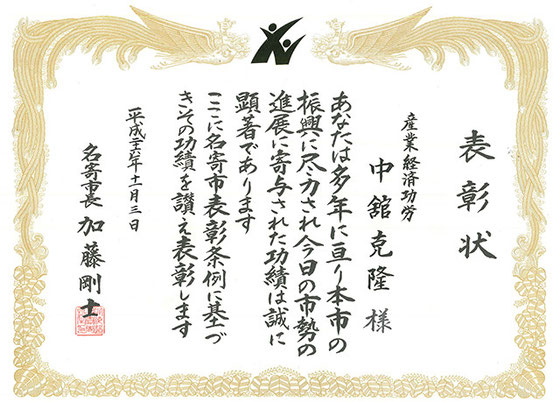 表彰状
産業経済功労
中舘克隆様
あなたは多年に亘り本市の
振興に尽力され今日の市勢の
進展に寄与された功績は誠に
顕著であります
ここに名寄市表彰条例に基づ
きその功績を讃え表彰します
平成二十六年十一月三日
名寄市長 加藤剛士